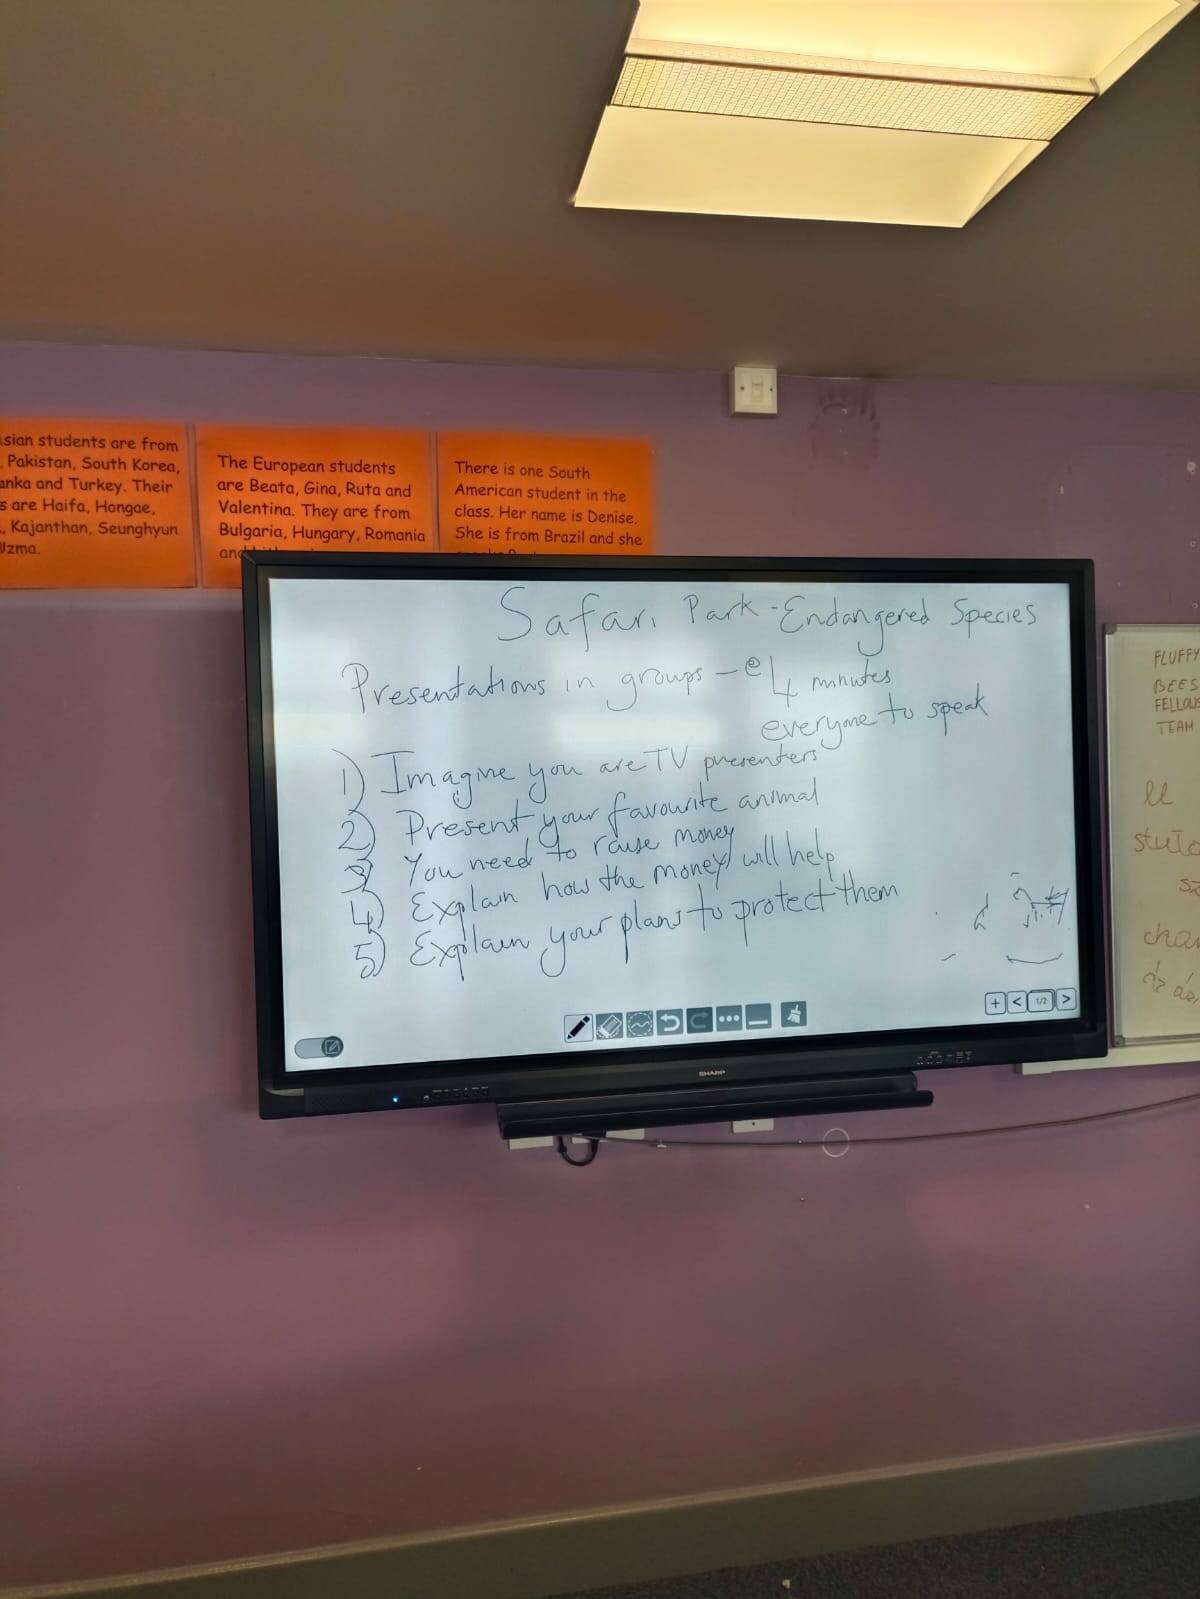 sian students are from
, Pakistan, South Korea,
anka and Turkey. Their
s are Haifa, Hongae,
., Kajanthan, Seunghyun
Uzma.
The European students
are Beata, Gina, Ruta and
Valentina. They are from
Bulgaria, Hungary, Romania
and
There is one South
American student in the
class. Her name is Denise.
She is from Brazil and she
Safari Park - Endangered Species
Presentations in groups - 4 minutes
everyone to speak
1) Imagine you are TV presenters
2) Present your favourite animal
3) You need to raise money
4) Explain how the money will help
5) Explain your plans to protect them
1/2
SHARP
FLUFFY
BEES
TEAM